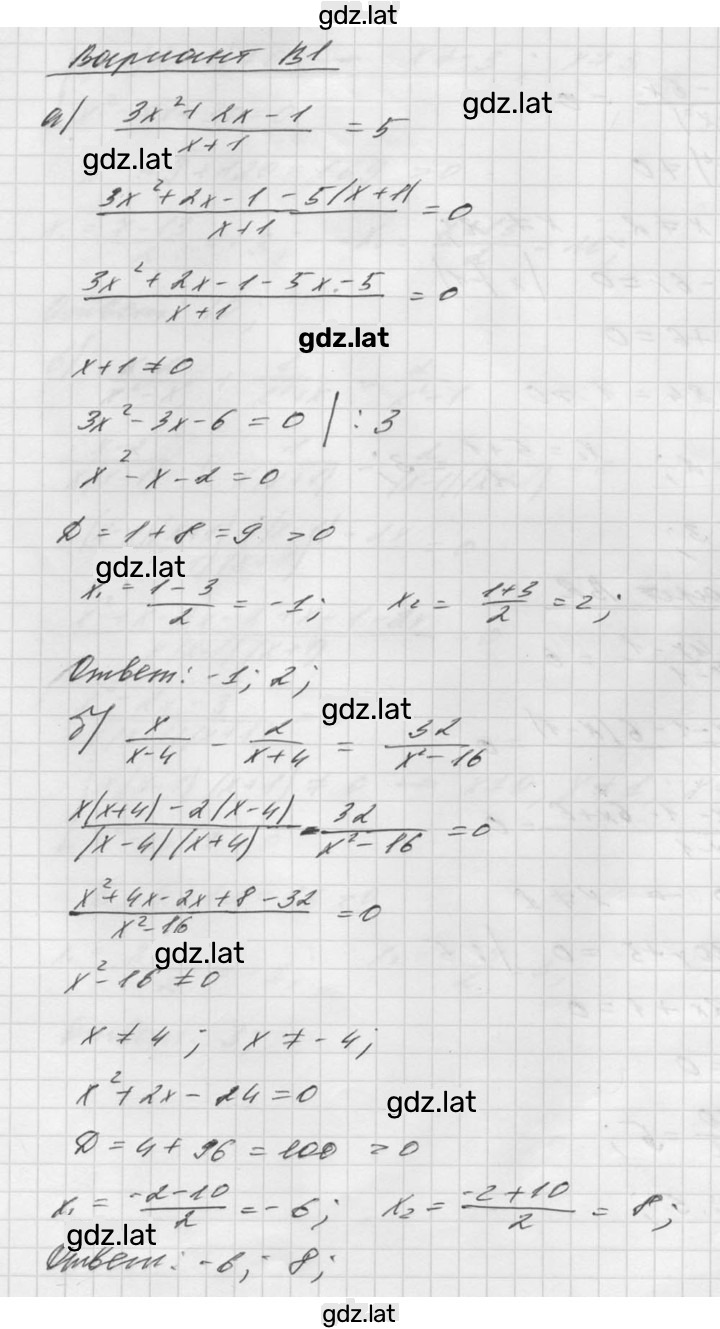 gdz.lat
Вариант В1
а) (3x²+2x-1)/(x+1) = 5
gdz.lat
gdz.lat
(3x²+2x-1-5(x+1))/(x+1) = 0
(3x²+2x-1-5x-5)/(x+1) = 0
gdz.lat
x+1≠0
3x²-3x-6=0 | :3
x²-x-2=0
D=1+8=9 >0
gdz.lat
x₁ = (1-3)/2 = -1; x₂ = (1+3)/2 = 2;
Ответ: -1; 2;
gdz.lat
б) x/(x-4) - 2/(x+4) = 32/(x²-16)
(x(x+4)-2(x-4))/((x-4)(x+4)) - 32/(x²-16) = 0
(x²+4x-2x+8-32)/(x²-16) = 0
gdz.lat
x²-16≠0
x≠4; x≠-4;
x²+2x-24=0
gdz.lat
D=4+96=100 >0
x₁ = (-2-10)/2 = -6; x₂ = (-2+10)/2 = 8;
gdz.lat
Ответ: -6; 8;
gdz.lat